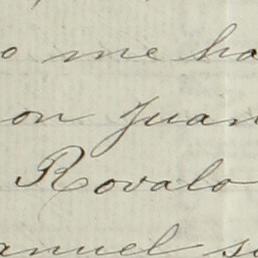 o me ha
on Juan
Rovalo
anuel s